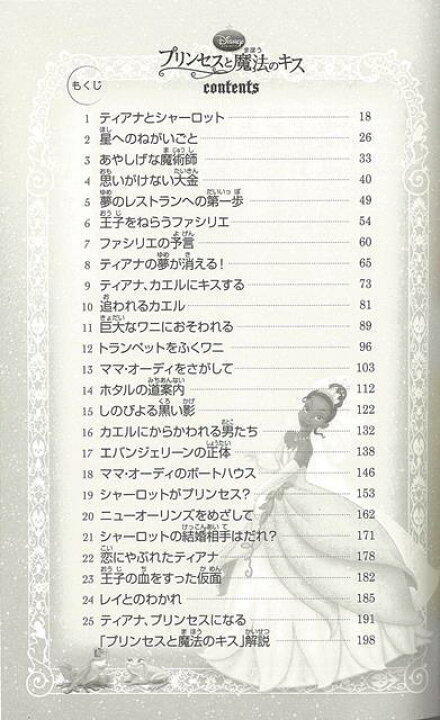 Disney
プリンセスと魔法のキス
もくじ
contents
1 ティアナとシャーロット 18
2 星へのねがいごと 26
3 あやしげな魔術師 33
4 思いがけない大金 40
5 夢のレストランへの第一歩 49
6 王子をねらうファシリエ 54
7 ファシリエの予言 60
8 ティアナの夢が消える! 65
9 ティアナ、カエルにキスする 73
10 追われるカエル 81
11 巨大なワニにおそわれる 89
12 トランペットをふくワニ 96
13 ママ・オーディをさがして 103
14 ホタルの道案内 112
15 しのびよる黒い影 122
16 カエルにからかわれる男たち 132
17 エバンジェリーンの正体 138
18 ママ・オーディのボートハウス 146
19 シャーロットがプリンセス? 153
20 ニューオーリンズをめざして 162
21 シャーロットの結婚相手はだれ? 171
22 恋にやぶれたティアナ 178
23 王子の血をすった仮面 182
24 レイとのわかれ 185
25 ティアナ、プリンセスになる 191
「プリンセスと魔法のキス」解説 198